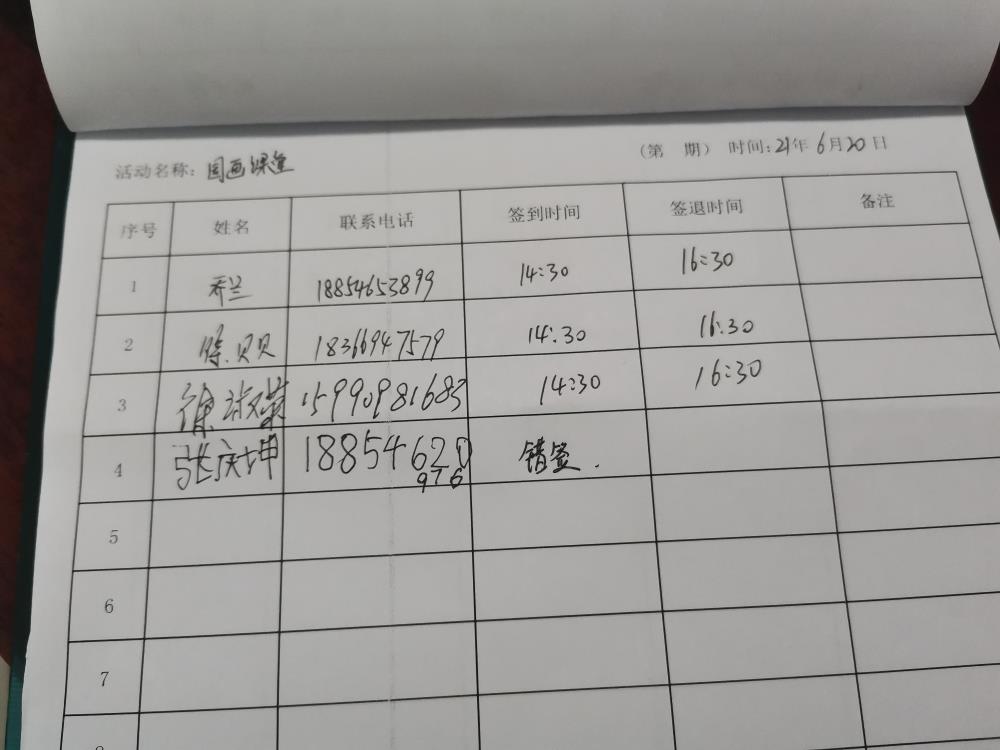 （第 期） 时间：21年6月20日
活动名称：国画课堂
序号 姓名 联系电话 签到时间 签退时间 备注
1 乔兰 18854653899 14:30 16:30
2 徐贝贝 18366947579 14:30 16:30
3 徐淑荣 15990981683 14:30 16:30
4 张庆坤 18854620976 错签.
5
6
7